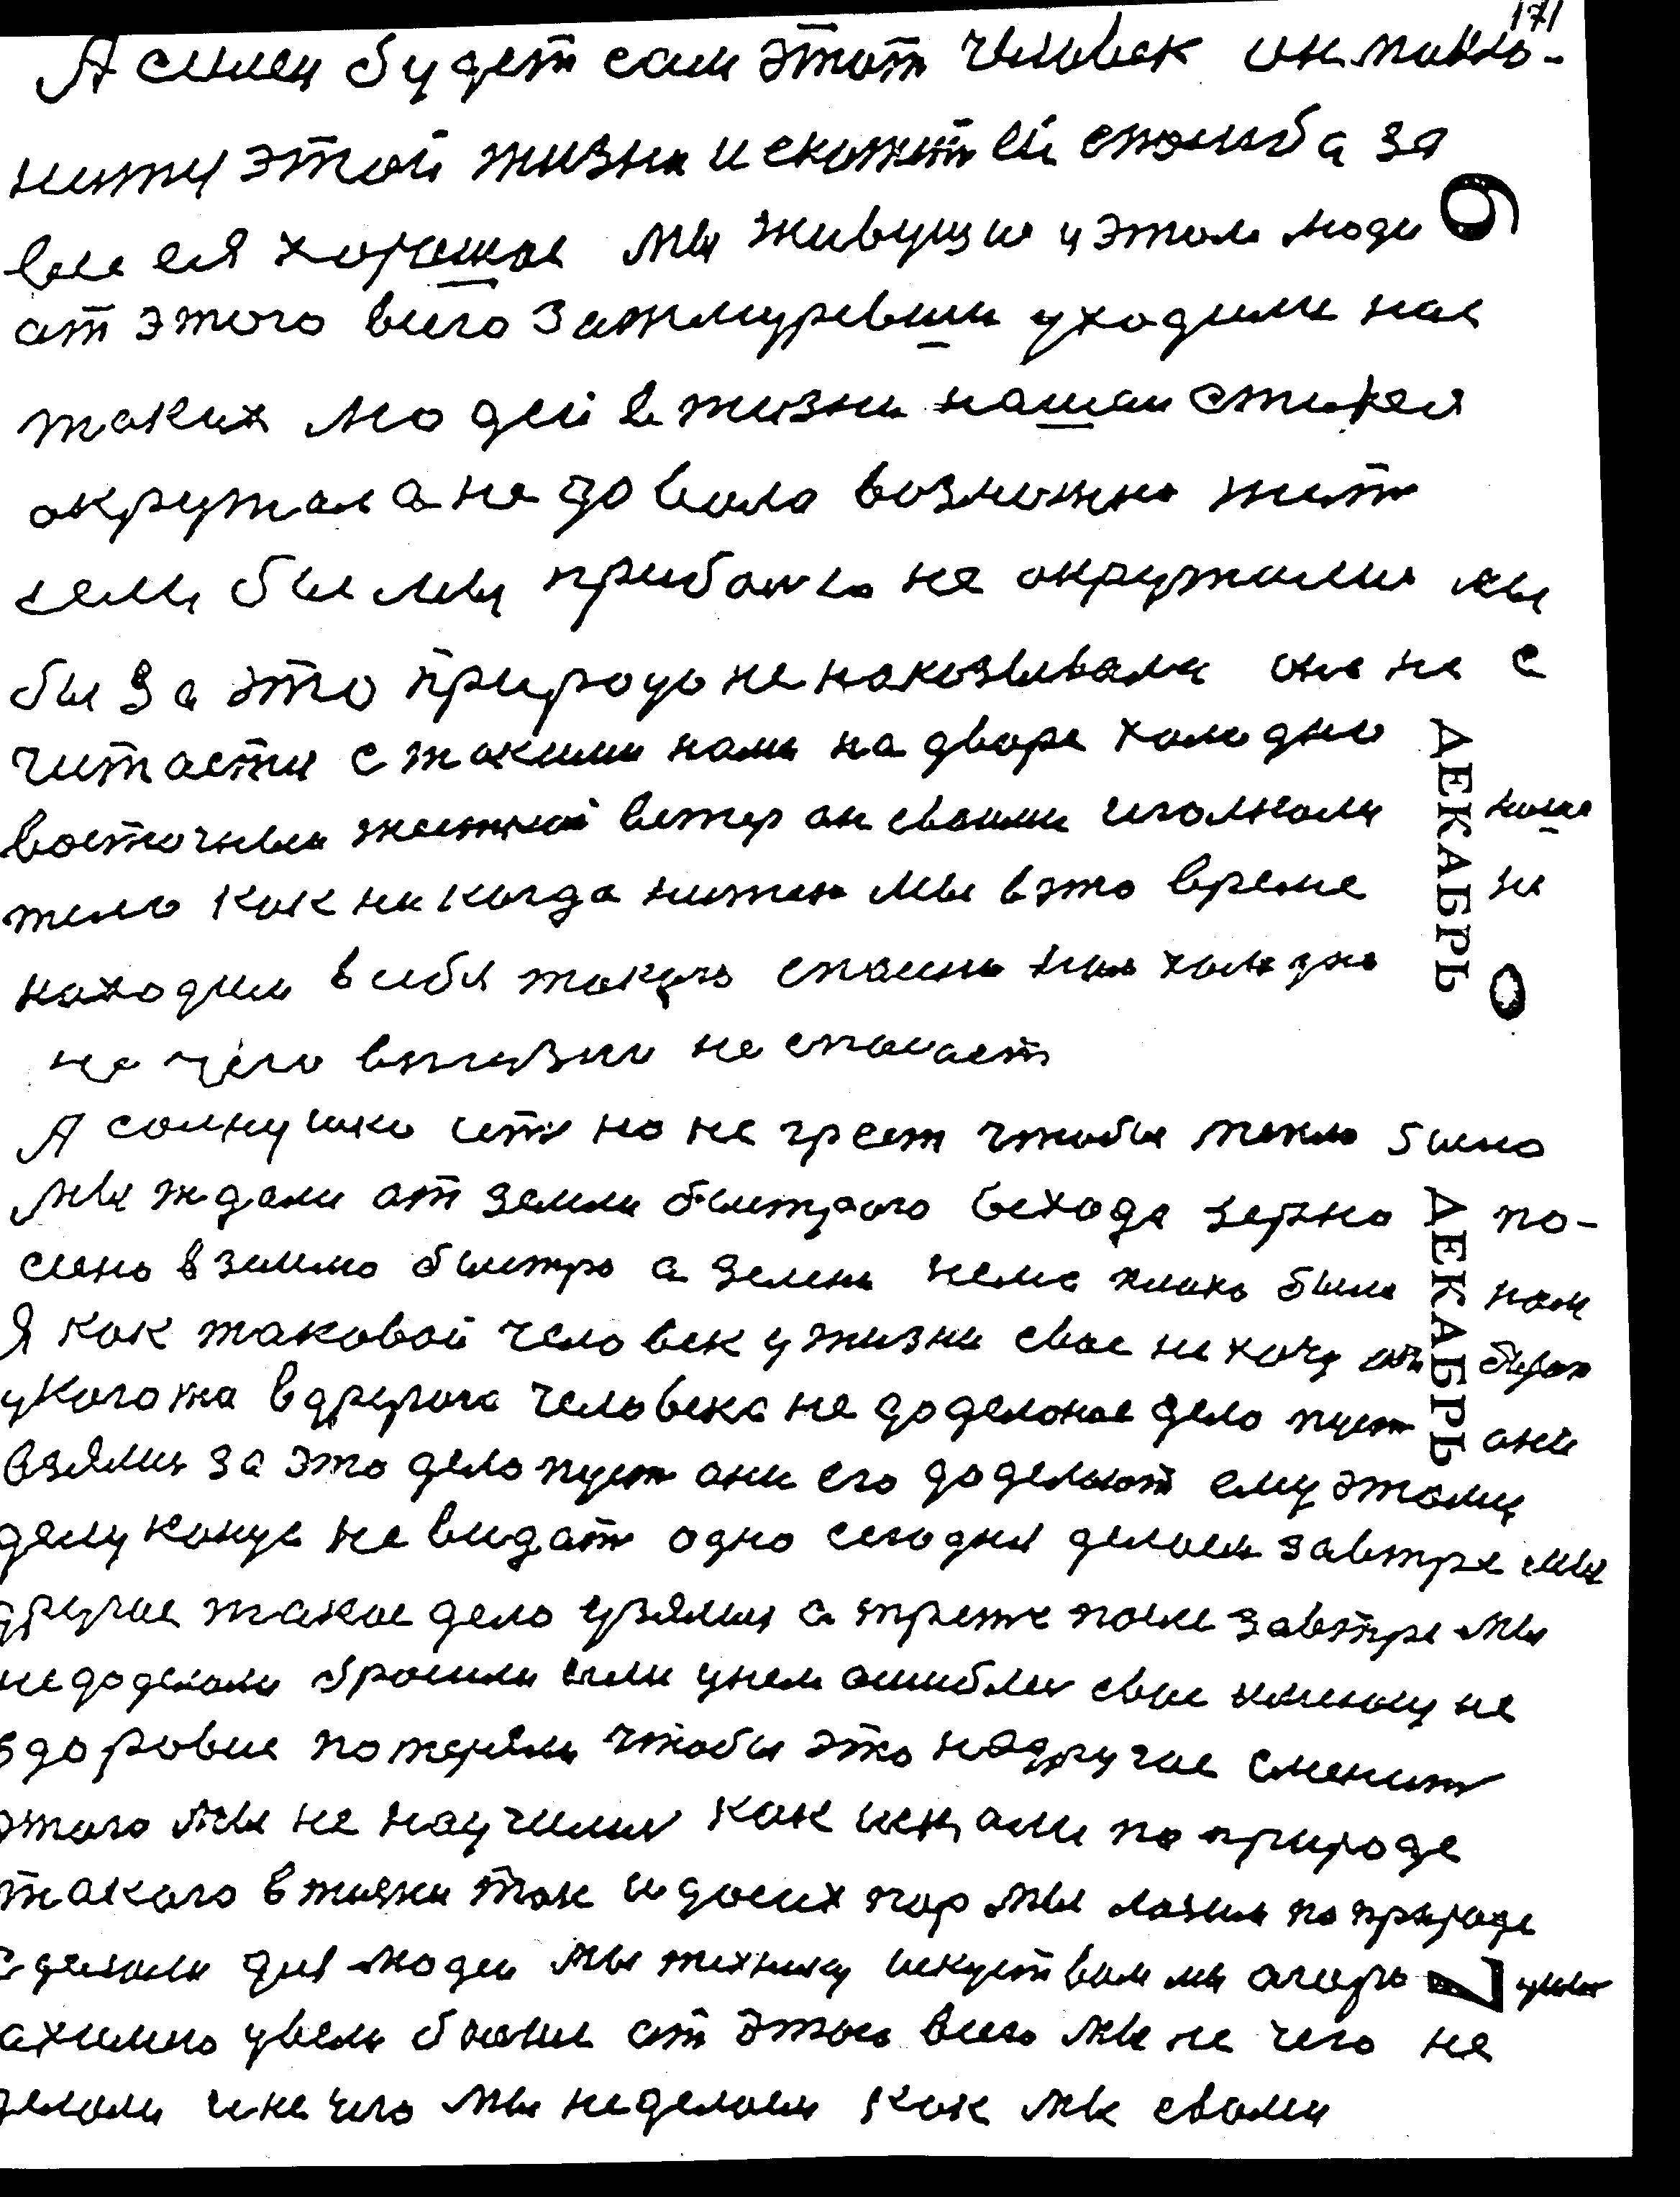 171
А силен будет сам этот человек он
этой жизни и скажет ей спасиба за
все ея хорошае мы живущие у этом люди
6
ат этого всего зажмуревши уходим нас
таких людей в жизни нашаи стихея
окружала не довала возможно жит
если бы мы прибоило не окружали мы
бы за это природо не наказывали она не с
читаетця с такими нами на дворе холодно
восточныи жесткий ветер он своими иголкоми наше
тело как ни когда мы в это време не
находим в себя такого спасино нам холодно
не чего в жизни не спасает
ДЕКАБРЬ
0
А солнушко ест но не греет чтобы тепло было
мы ждали ат земли быстрого всхода зерно по-
сено в зимлю быстро а зелени нема плохо была нам
Я как таковой человек у жизни свое не хочу
укого та в другога человека не доделоное дело пуст ани
взялис за это дело пуст ани его доделают ему этому
делу конца не видат одно сегодня делаем завтре мы
другое такое дело узялис а третте после завтре мы
недоделали бросили или унем ошиблис свае не
здоровие потеряли чтобы это надругое сменит
этого мы не научилис как искали по природе
такого в жизни так и досих пор мы лазим по природе
сделали для людеи мы технику искуством мы
ДЕКАБРЬ
7
ахимию увели от этого всего мы не чего не
делали и не чего мы неделаем как мы своми